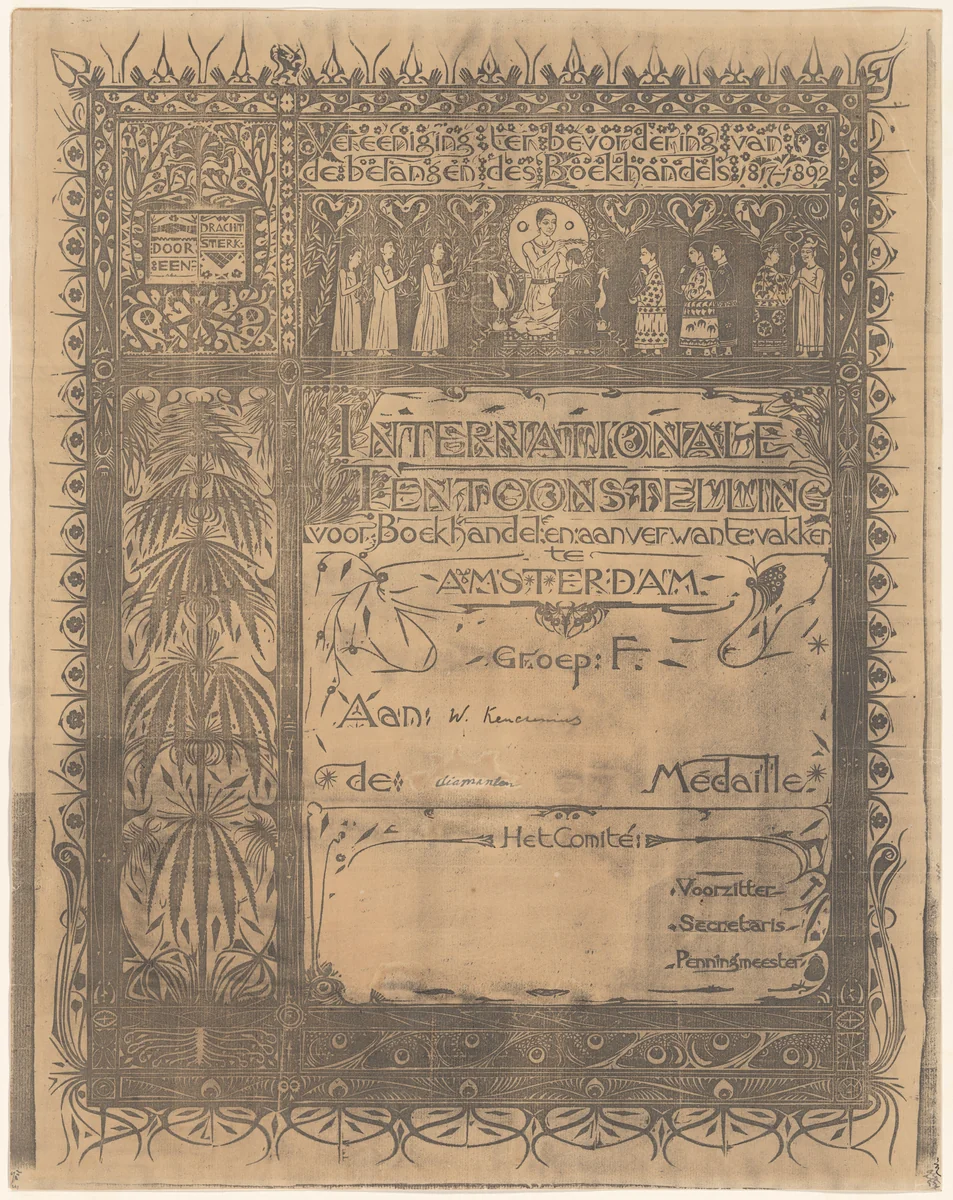 Vereeniging:ter:bevordering:van:
de:belangen:des:Boekhandels:1817-1892
:DOOR:
:EEN=
DRACHT
STERK:
INTERNATIONALE
TENTOONSTELLING
voor:Boekhandel:en:aanverwante:vakken
te
AMSTERDAM.
Groep: F.
Aan: W.
de: diamanten Médaille
Het Comité:
Voorzitter
Secretaris
Penningmeester